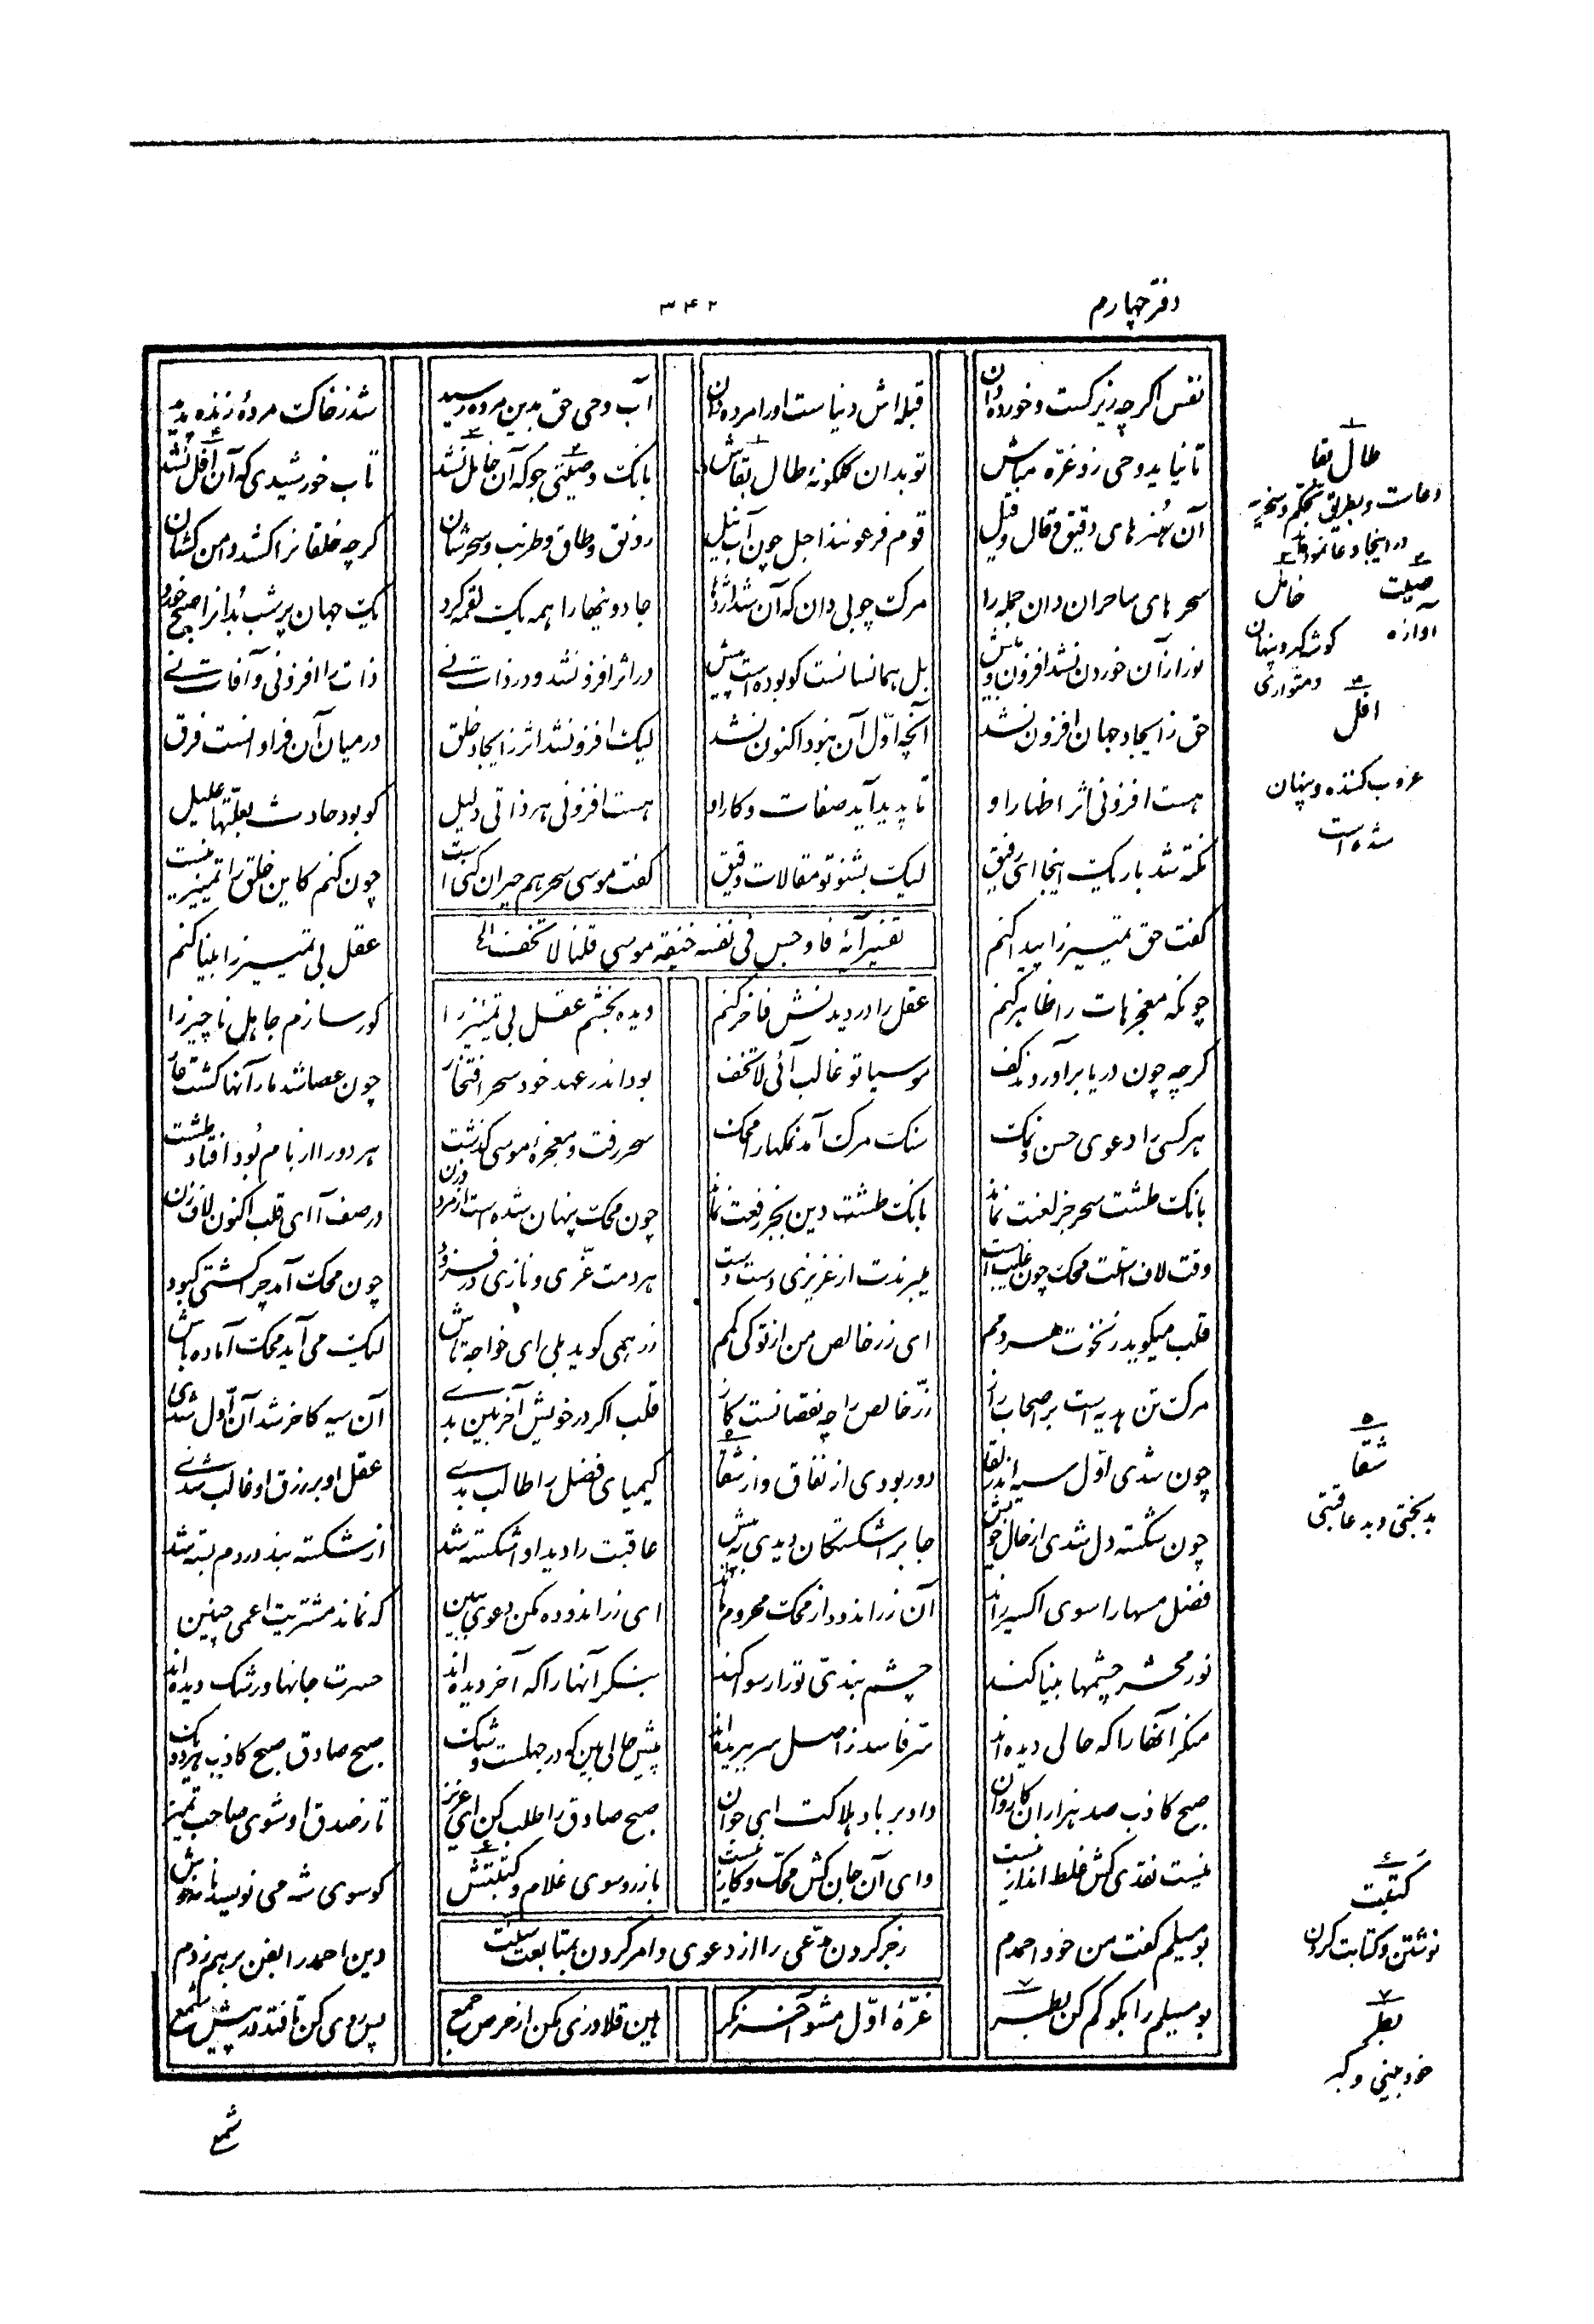 دفتر چهارم
۳۴۲
نفس اگر چه زیرکست و خورده دان قبله اش دنیاست او را مرده دان آب وحی حق بدین مرده رسید شد ز خاک مردهٔ زنده پدید
تا نیاید وحی زو غره مباش تو بدان گلگونهٔ طال بقاش بانگ و صیتی جو که آن خامل نشد تاب خورشیدی که آن آفل نشد
آن هنرهای دقیق و قال و قیل قوم فرعونند اجل چون آب نیل رونق و طاق و طرنب و سحرشان گر چه خلقانرا کشد دامن کشان
سحرهای ساحران دان جمله را مرگ چوبی دان که آن شد اژدها جادوئیها را همه یک لقمه کرد یک جهان پر شب بد آنرا صبح خورد
نور از آن خوردن نشد افزون و بیش بل همانسانست کو بوده است پیش در اثر افزون شد و در ذات نی ذات را افزونی و آفات نی
حق ز ایجاد جهان افزون نشد آنچه اول آن نبود اکنون نشد لیک افزون شد اثر ز ایجاد خلق در میان آن فراوانست فرق
هست افزونی اثر اظهار او تا پدید آید صفات و کار او هست افزونی هر ذاتی دلیل کو بود حادث بعلتها علیل
نکته شد باریک اینجا ای رفیق لیک بشنو تو مقالات دقیق گفت موسی سحر هم حیران کنی است چون کنم کاین خلق را تمییز نیست
تفسیر آیه فاوجس فی نفسه خیفة موسی قلنا لا تخف الخ
گفت حق تمییز را پیدا کنم عقل بی تمییز را بینا کنم
چونکه معجزهات را ظاهر کنم عقل را در دیدنش فاخر کنم دیده بخشم عقل بی تمییز را کور سازم جاهل ناچیز را
گر چه چون دریا برآوردند کف موسیا تو غالب آئی لا تخف بود اندر عهد خود سحر افتخار چون عصا شد مار آنها گشت عار
هر کسی را دعوی حسن و نمک سنگ مرگ آمد نمکها را محک سحر رفت و معجزهٔ موسی گذشت هر دو را از بام بود افتاد طشت
بانگ طشت سحر جز لعنت نماند بانگ طشت دین بجز رفعت نماند چون محک پنهان شده است از مرد و زن در صف آ ای قلب اکنون لاف زن
وقت لاف استت محک چون غایب است میبرندت از عزیزی دست دست هر دمت عزی و نازی در فزود چون محک آمد چرا گشتی کبود
قلب میگوید ز نخوت هر دمم ای زر خالص من از تو کی کمم زر همی گوید بلی ای خواجه تاش لیک می آید محک آماده باش
مرگ تن هدیه است بر اصحاب راز زر خالص را چه نقصانست گاز قلب اگر در خویش آخر بین بدی آن سیه کاخر شد آن اول شدی
چون شدی اول سیه اندر لقا دور بودی از نفاق و از شقا کیمیای فضل را طالب بدی عقل او بر زرق او غالب شدی
چون شکسته دل شدی از حال خویش جابر اشکستگان دیدی به پیش عاقبت را دید او اشکسته شد از شکسته بند در دم بسته شد
فضل مسها را سوی اکسیر راند آن زر اندود از محک محروم ماند ای زر اندوده مکن دعوی ببین که نماند مشتریت اعمی چنین
نور محشر چشمها بینا کند چشم بندی تو را رسوا کند بنگر آنها را که آخر دیده اند حسرت جانها و رشک دیده اند
منگر آنها را که حالی دیده اند سر فاسد ز اصل سر ببریده اند پیش حالی بین که در جهلست و شک صبح صادق صبح کاذب هر دو یک
صبح کاذب صد هزاران کاروان داد بر باد هلاکت ای جوان صبح صادق را طلب کن ای عزیز تا ز صدق او شوی صاحب تمیز
نیست نقدی کش غلط انداز نیست وای آن جان کش محک و گاز نیست باز رو سوی غلام و کتبتش کو سوی شه می نویسد نامه خوش
زجر کردن مدعی را از دعوی و امر کردن بمتابعت
بو مسیلم گفت من خود احمدم دین احمد را بفن بر هم زدم
بو مسیلم را بگو کم کن بطر غرهٔ اول مشو آخر نگر هین قلاوزی مکن از حرص جمع پس روی کن تا فتد در پیش شمع
شمع
۱
طال بقا
دعاست و بطریق تهکم و سخریه
در اینجا دعا نموده
۲
صیت
آوازه
۳
خامل
گوشه گیر و پنهان
و متواری
۴
افل
غروب کننده و پنهان
شده است
۵
شقا
بدبختی و بد عاقبتی
۶
کتبت
نوشتن و کتابت کردن
۷
بطر
خودبینی و کبر